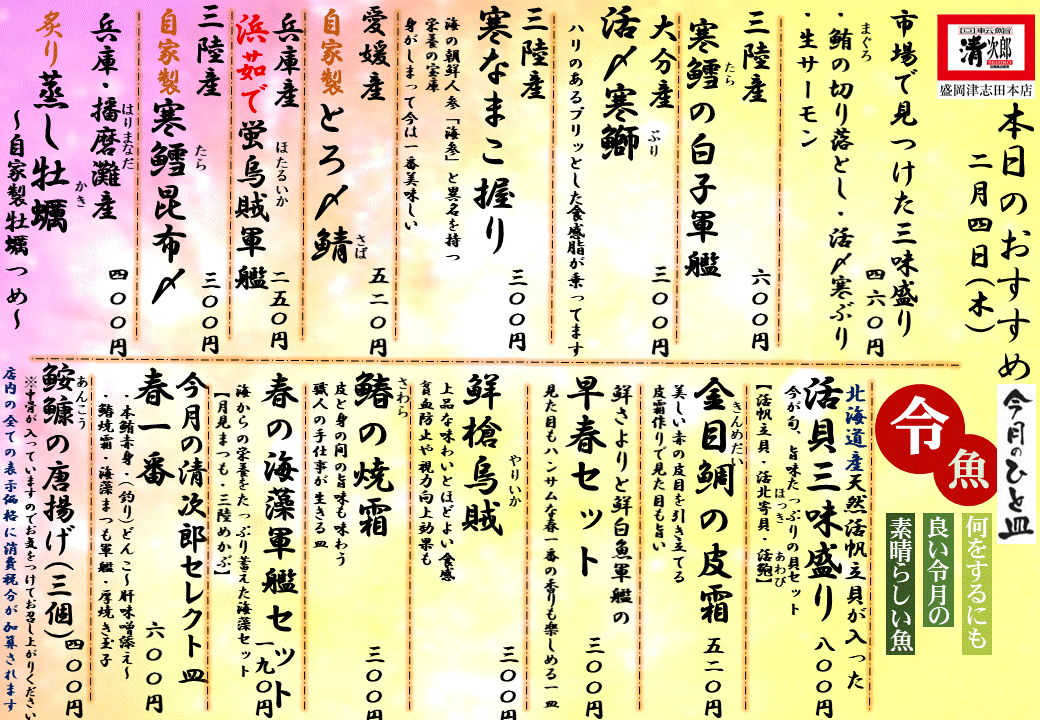 清次郎
盛岡津志田本店
本日のおすすめ
二月四日(木)
市場で見つけた三味盛り
・鮪の切り落とし・活〆寒ぶり
まぐろ
・生サーモン
四六〇円
三陸産
寒鱈の白子軍艦
たら
六〇〇円
大分産
活〆寒鰤
ぶり
ハリのあるプリッとした食感脂が乗ってます
三〇〇円
三陸産
寒なまこ握り
海の朝鮮人参「海参」と異名を持つ
栄養の宝庫
身がしまって今は一番美味しい
三〇〇円
愛媛産
自家製とろ〆鯖
さば
五二〇円
兵庫産
浜茹で蛍烏賊軍艦
ほたるいか
二五〇円
三陸産
自家製寒鱈昆布〆
たら
三〇〇円
兵庫・播磨灘産
はりまなだ
炙り蒸し牡蠣
かき
~自家製牡蠣つめ~
四〇〇円
今月のひと皿
令魚
何をするにも
良い令月の
素晴らしい魚
北海道産天然活帆立貝が入った
活貝三味盛り
今が旬、旨味たっぷりの貝セット
【活帆立貝・活北寄貝・活鮑】
ほっき
あわび
八〇〇円
金目鯛の皮霜
きんめだい
美しい赤の皮目を引き立てる
皮霜作りで見た目も旨い
五二〇円
鮮さよりと鮮白魚軍艦の
早春セット
見た目もハンサムな春一番の香りも楽しめる一皿
三〇〇円
鮮槍烏賊
やりいか
上品な味わいとほどよい食感
貧血防止や視力向上効果も
三〇〇円
鰆の焼霜
さわら
皮と身の間の旨味も味わう
職人の手仕事が生きる皿
三〇〇円
春の海藻軍艦セット
海からの栄養をたっぷり蓄えた海藻セット
【月見まつも・三陸めかぶ】
一九〇円
今月の清次郎セレクト皿
春一番
・本鮪赤身・(釣り)どんこ~肝味噌添え~
・鰆焼霜・海藻まつも軍艦・厚焼き玉子
六〇〇円
鮟鱇の唐揚げ(三個)
あんこう
※中骨が入っていますのでお気をつけてお召し上がりください
四〇〇円
店内の全ての表示価格に消費税分が加算されます